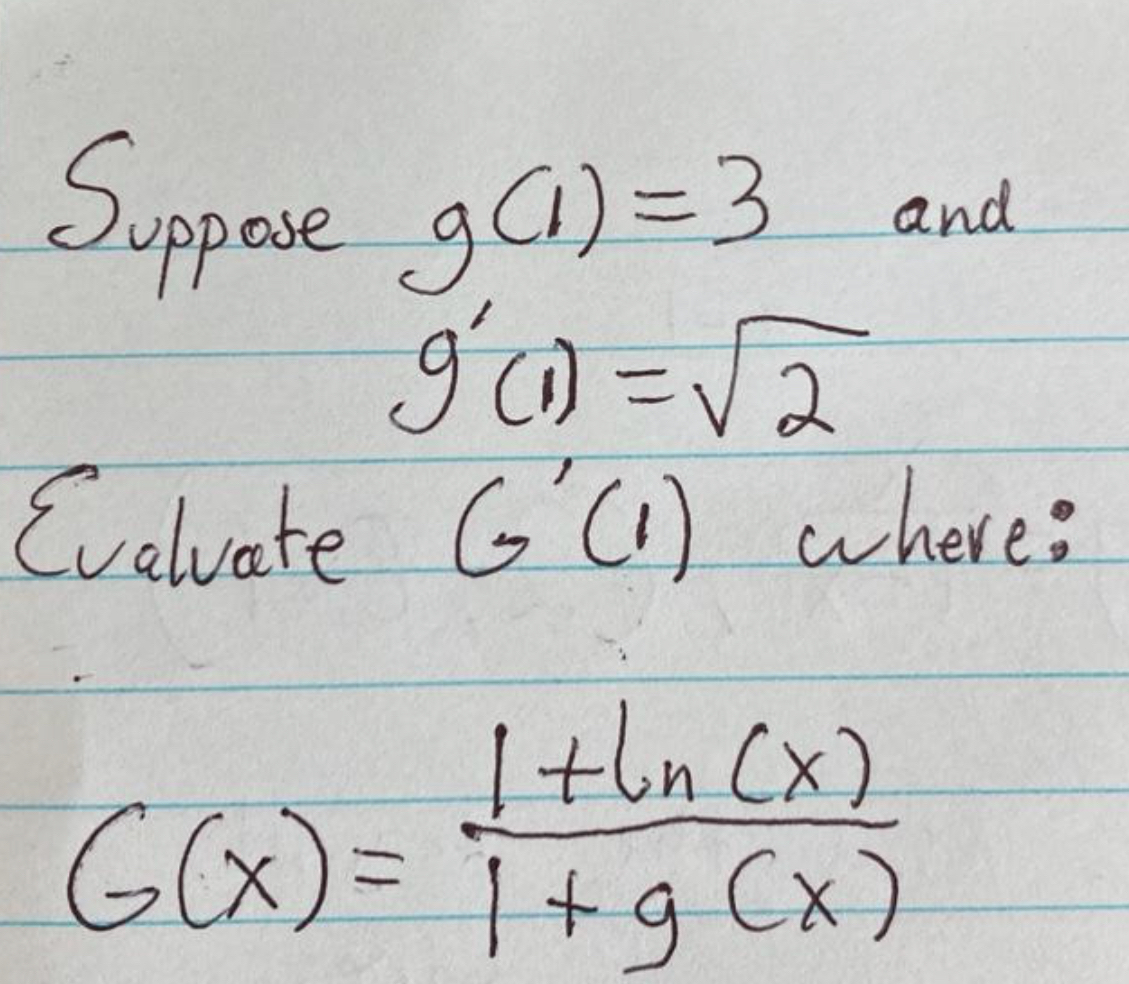 Suppose g(1) = 3 and
g'(1) = √2
Evaluate G'(1) where:
G(x) = (1 + ln(x)) / (1 + g(x))